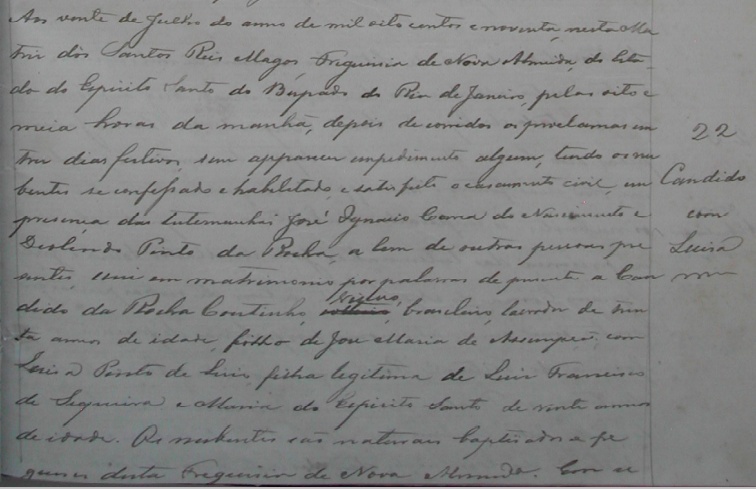 Aos vinte de Julho do anno de mil oito centos e noventa, nesta Ma
triz dos Santos Reis Magos Freguesia de Nova Almeida, do Esta
do do Espirito Santo do Bispado do Rio de Janeiro, pelas oito e
meia horas da manhã, depois de corridos os proclamas em
tres dias festivos, sem apparecer impedimento algum, tendo os nu
bentes se confessado e habilitado, e satisfeito o casamento civil, em
presença das testemunhas José Ignacio Correa do Nascimento e
Deolindo Pinto da Rocha, a lem de outras pessoas pre
sentes, uni em matrimonio por palavras de presente a Can
dido da Rocha Coutinho, viuvo, brasileiro, lavrador de trin
ta annos de idade, filho de José Maria de Assumpção, com
Luisa Pinto de Jesus, filha legitima de Luis Francisco
de Siqueira e Maria do Espirito Santo de vinte annos
de idade. Os nubentes são naturais baptisados e fre
gueses desta Freguesia de Nova Almeida. Com se
22
Candido
com
Luisa